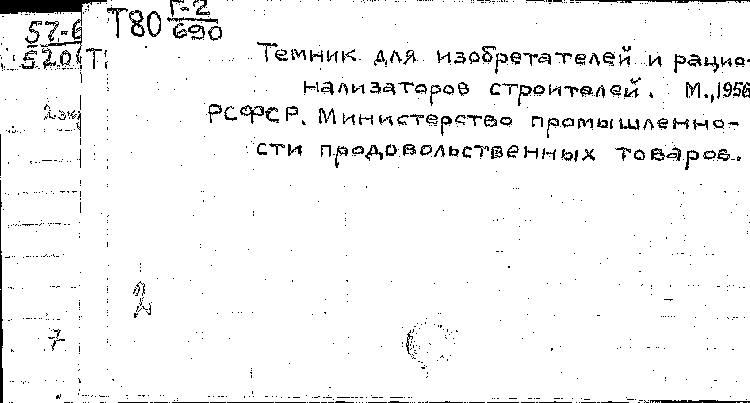 Т80 Г-2/690
57-6
5206 Т
Темник для изобретателей и рацио-
нализаторов строителей. М., 1956
2 экз
РСФСР. Министерство промышленно-
сти продовольственных товаров.
2
7